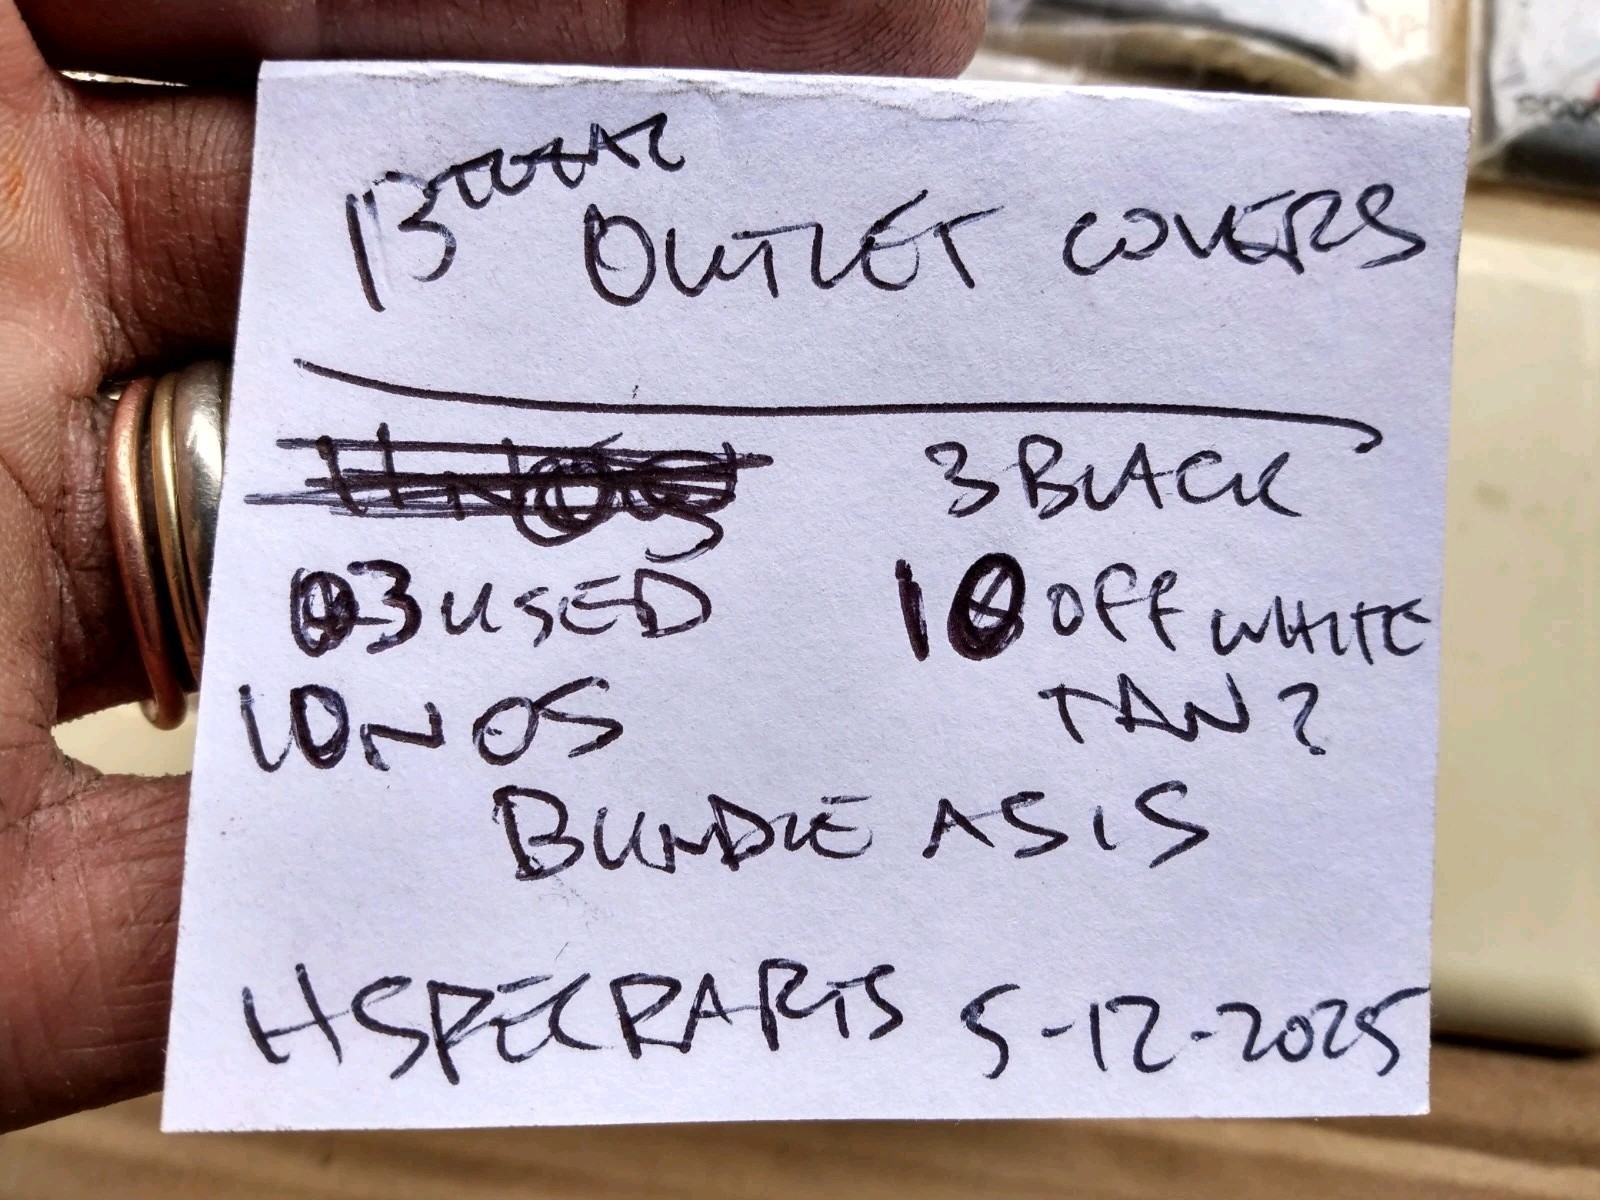 13 TOTAL OUTLET COVERS
3 BLACK
3 USED
10 OFF WHITE
10 NOS
TAN?
BUNDLE AS IS
HSPECPARTS 5-12-2025